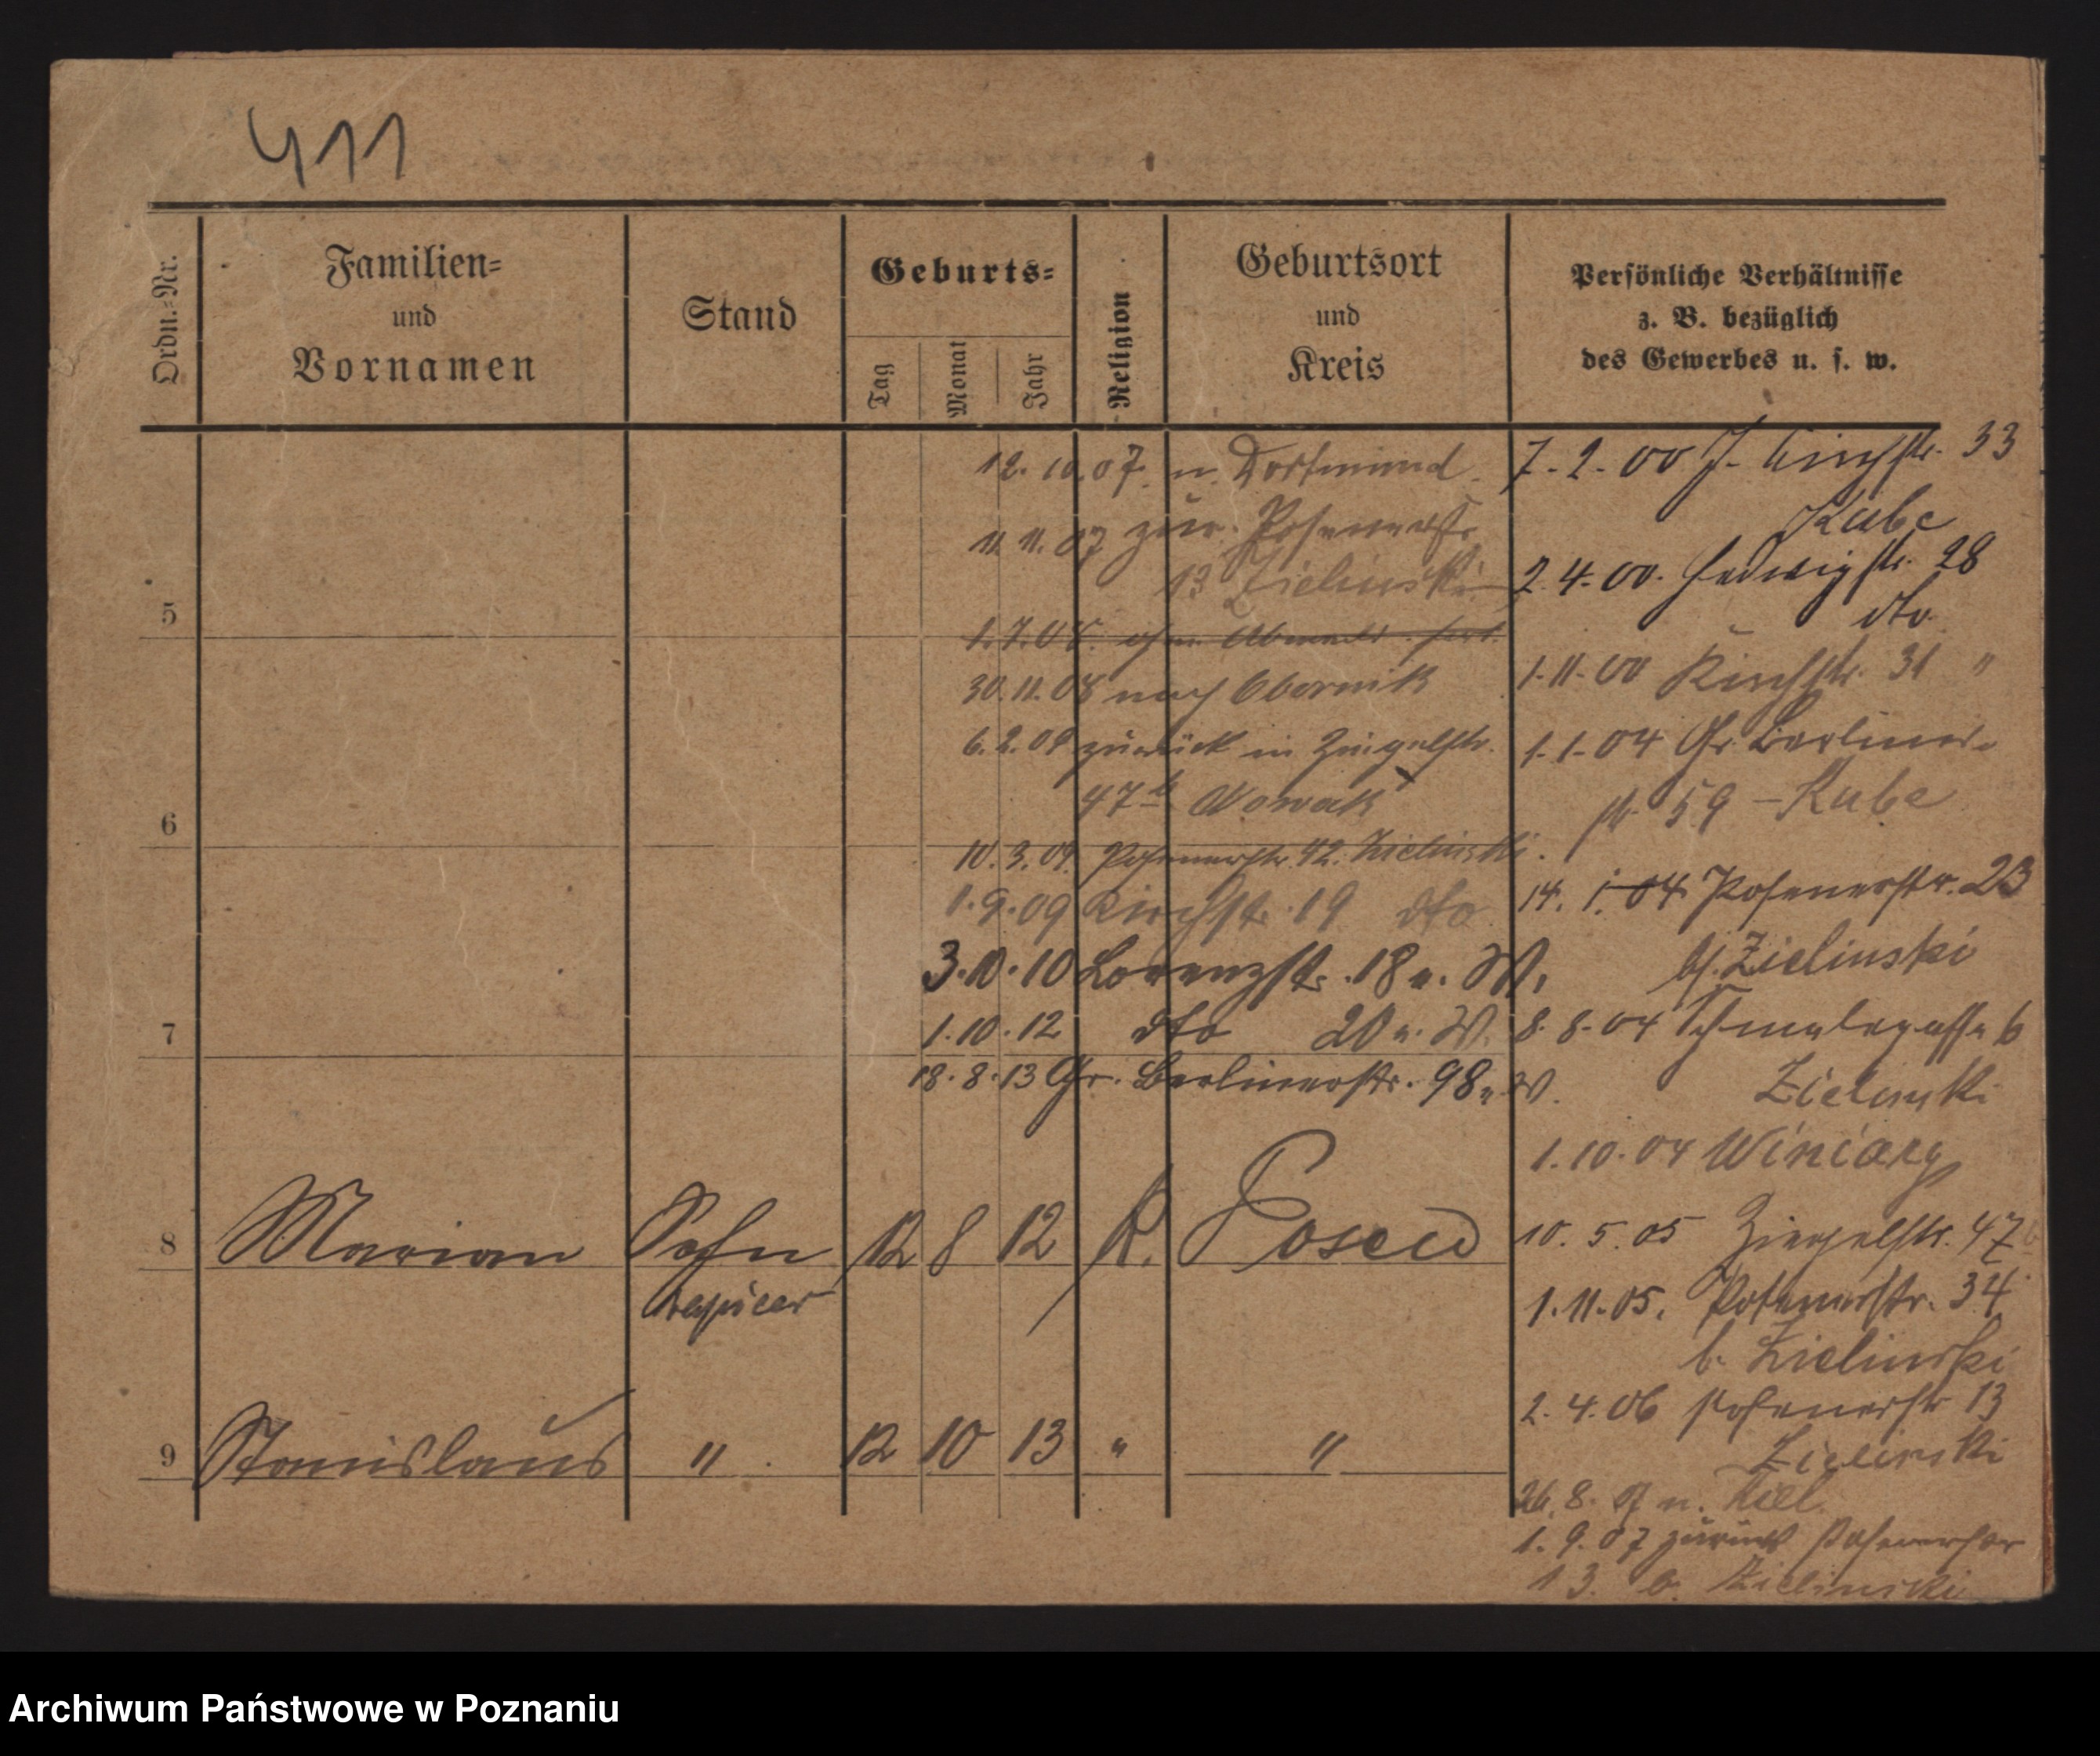 411
Ordn.-Nr.
Familien-
und
Vornamen
Stand
Geburts-
Tag
Monat
Jahr
Religion
Geburtsort
und
Kreis
Persönliche Verhältnisse
z. B. bezüglich
des Gewerbes u. s. w.
12. 10. 07. n. Dortmund
11. 11. 07 zur. Posenerstr.
13 Zielinski
5
1. 7. 08. ohne Abmeld.
30. 11. 08 nach Obornik
6. 2. 09 zurück in Ziegelstr.
47b Nowak
6
10. 3. 09. Posenerstr. 42. Zielinski.
1. 9. 09 Kirchstr. 19 dto
3. 10. 10 Lorenzstr. 18 e. W.
7
1. 10. 12 dto 20 e. W.
18. 8. 13 Gr. Berlinerstr. 98 e. W.
8 Marian Sohn 12 8 12 K. Posen
Tapicer
9 Stanislaus " 12 10 13 " "
7. 2. 00 J. Kirchstr. 33
Kube
2. 4. 00. Hedwigstr. 28
dto.
1. 11. 00 Kirchstr. 31 "
1. 1. 04 Gr. Berliner-
str 59 - Kube
14. 1. 04 Posenerstr. 23
bj. Zielinski
8. 8. 04 Schmalegasse 6
Zielinski
1. 10. 04 Winiary
10. 5. 05 Ziegelstr. 47b
1. 11. 05. Posenerstr. 34
b. Zielinski
2. 4. 06 Posenerstr 13
Zielinski
26. 8. 07 n. Kiel.
1. 9. 07 zurück Posenerstr
13. b. Zielinski
Archiwum Państwowe w Poznaniu